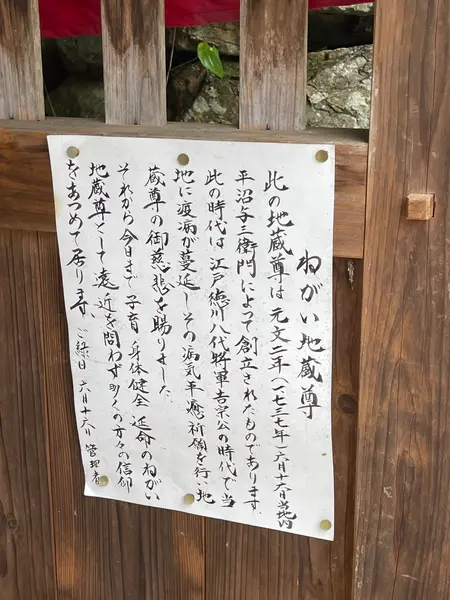 ねがい地蔵尊
此の地蔵尊は元文二年(一七三七年)六月十六日当地内
平沼与三衛門によって創立されたものであります
此の時代は江戸徳川八代将軍吉宗公の時代で当
地に疫病が蔓延しその病気平癒祈願を行い地
蔵尊の御慈悲を賜りました
それから今日まで子育、身体健全 延命のねがい
地蔵尊として遠近を問わず多くの方々の信仰
をあつめて居ります、ご縁日 六月十六日 管理者